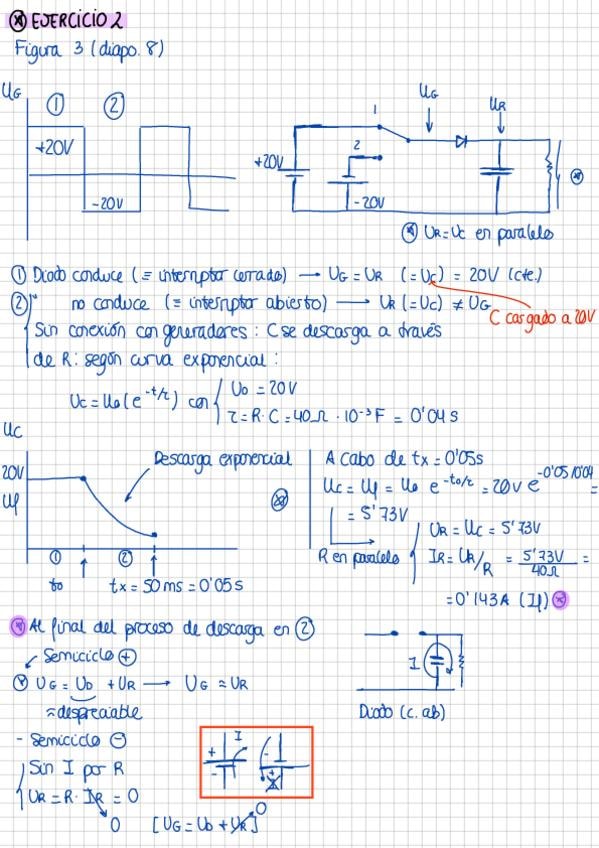 * EJERCICIO 2
Figura 3 (diapo. 8)
UG
1 2
+20V
-20V
1
2
+20V
-20V
UG
UR
*
* UR=UC en paralelo
① Diodo conduce (≡ interruptor cerrado) → UG = UR (=UC) = 20V (cte.)
② " no conduce (≡ interruptor abierto) → UR (=UC) ≠ UG
C cargado a 20V
Sin conexión con generadores: C se descarga a través
de R: según curva exponencial:
UC = U0 (e^-t/τ) con { U0 = 20V
τ = R·C = 40Ω · 10^-3 F = 0'04 s
UC
20V
Uf
Descarga exponencial
① ②
t0 tx = 50 ms = 0'05 s
A cabo de tx = 0'05s
UC = Uf = U0 e^-t0/τ = 20V e^-0'05/0'04 =
= 5'73V
R en paralelo
UR = UC = 5'73V
IR = UR/R = 5'73V/40Ω =
= 0'143A (If) *
* Al final del proceso de descarga en ②
Semiciclo +
* UG = UD + UR → UG ≈ UR
≈ despreciable
- Semiciclo -
Sin I por R
UR = R · IR = 0
0 [UG = UD + UR] 0
+ I -
- +
I
Diodo (c. ab)